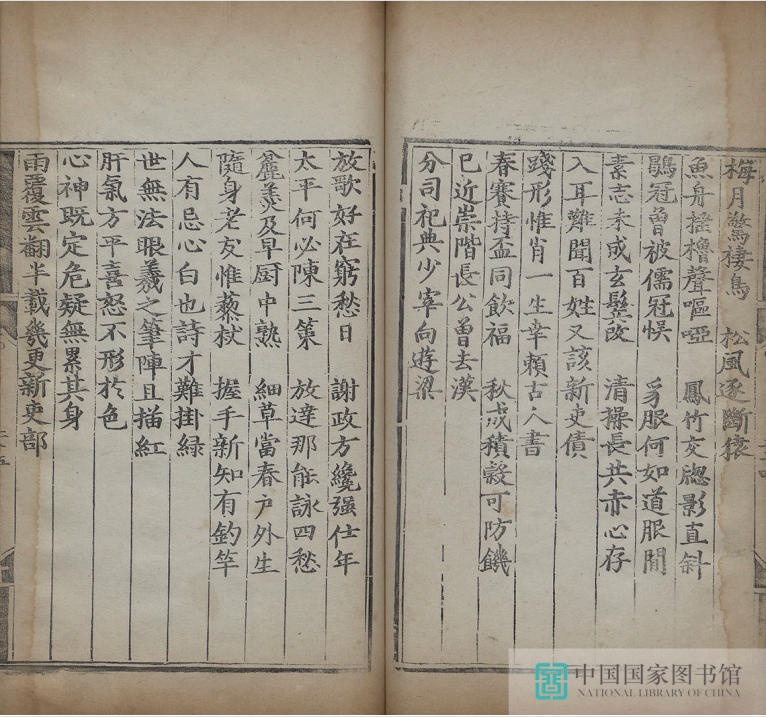 梅月驚棲鳥 松風逐斷猿
魚舟搖櫓聲嘔啞 鳳竹交牕影直斜
鶡冠曾被儒冠悞 豸服何如道服閒
素志未成玄鬢改 清操長共赤心存
入耳難聞百姓又該新吏債
踐形惟肖一生幸賴古人書
春賽持盃同飲福 秋成積穀可防饑
已近崇階長公曾去漢
分司祀典少宰向遊梁
放歌好在窮愁日 謝政方纔强仕年
太平何必陳三策 放達那能詠四愁
麄羮及早厨中熟 細草當春户外生
隨身老友惟藜杖 握手新知有釣竿
人有忌心白也詩才難掛綠
世無法眼羲之筆陣且描紅
肝氣方平喜怒不形於色
心神既定危疑無累其身
雨覆雲翻半載幾更新吏部
中国国家图书馆
NATIONAL LIBRARY OF CHINA